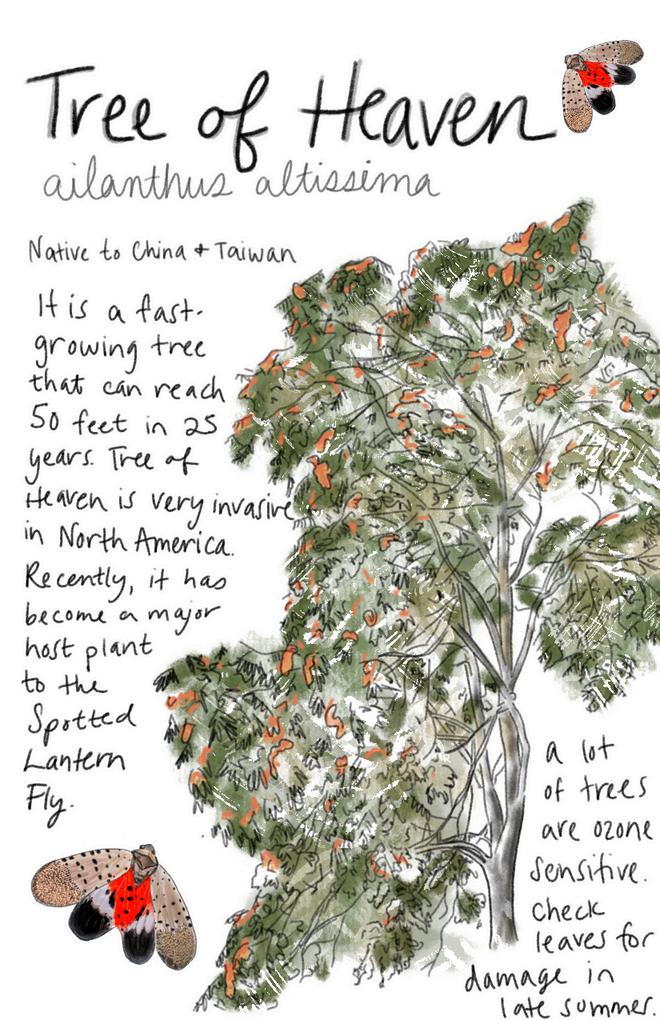 Tree of Heaven
ailanthus altissima
Native to China + Taiwan
It is a fast-
growing tree
that can reach
50 feet in 25
years. Tree of
Heaven is very invasive
in North America.
Recently, it has
become a major
host plant
to the
Spotted
Lantern
Fly.
a lot
of trees
are ozone
sensitive.
Check
leaves for
damage in
late summer.